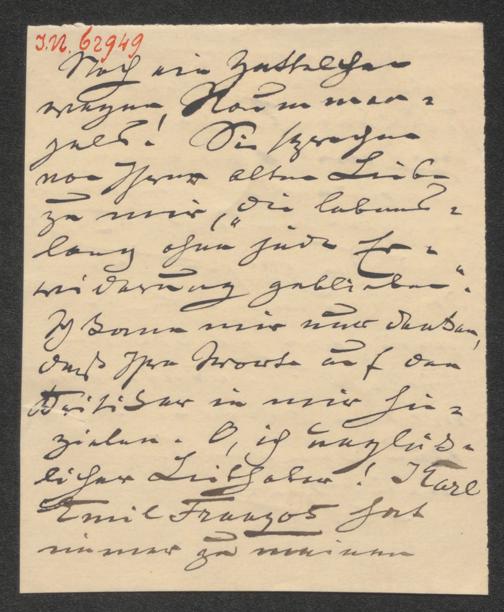 J.N. 62949
Noch ein Zettelchen
wegen Raumman-
gels! Sie sprechen
von Ihrer alten Liebe
zu mir, „die lebens-
lang ohne jede Er-
widerung geblieben“.
Ich kann mir nur denken,
daß Ihre Worte auf den
Kritiker in mir hin-
zielen. O, ich unglück-
licher Liebhaber! Karl
Emil Franzos hat
immer zu meinen